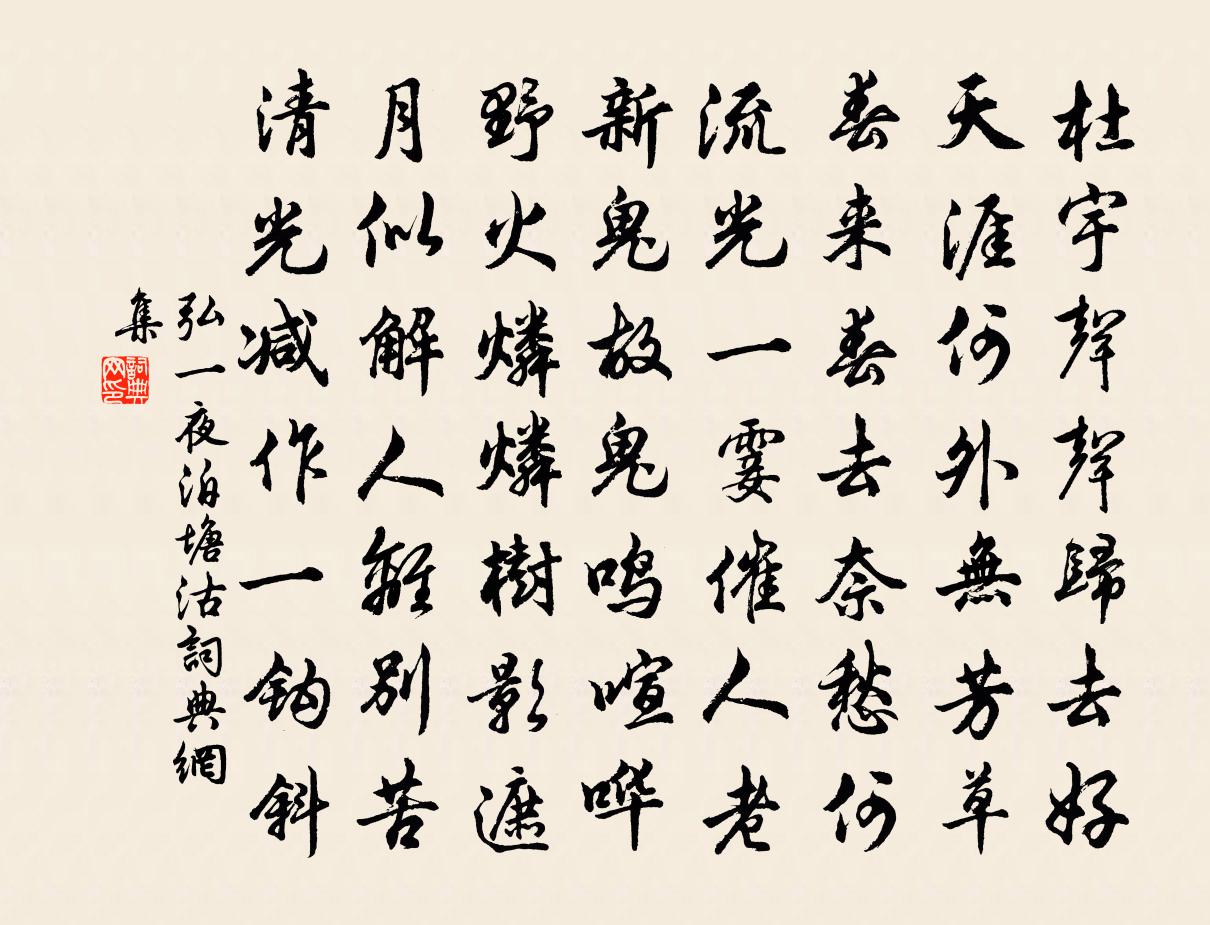 杜宇聲聲歸去好
天涯何外無芳草
春来春去奈愁何
流光一霎催人老
新鬼故鬼鸣喧哗
野火燐燐樹影遮
月似解人離別苦
清光减作一钩斜
弘一夜泊塘沽詞典網
集
詞典网印